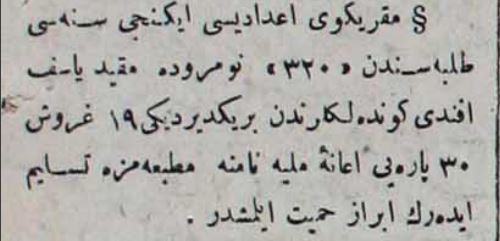 § مقریكوی اعدادیسی ایكنجی سنه‌سی
طلبه‌سندن «٣٢٠» نومروده مقید یاسف
افندی كونده‌لكلرندن بریكدیردیكی ١٩ غروش
٣٠ پاره‌یی اعانۀ ملیه نامنه مطبعه‌مزه تسلیم
ایده‌رك ابراز حمیت ایلمشدر .